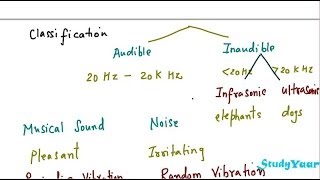 Classification
Audible Inaudible
20 Hz - 20 K Hz <20Hz >20 K Hz
Infrasonic ultrasonic
elephants dogs
Musical Sound Noise
Pleasant Irritating
Vibration Random Vibration
StudyYaar